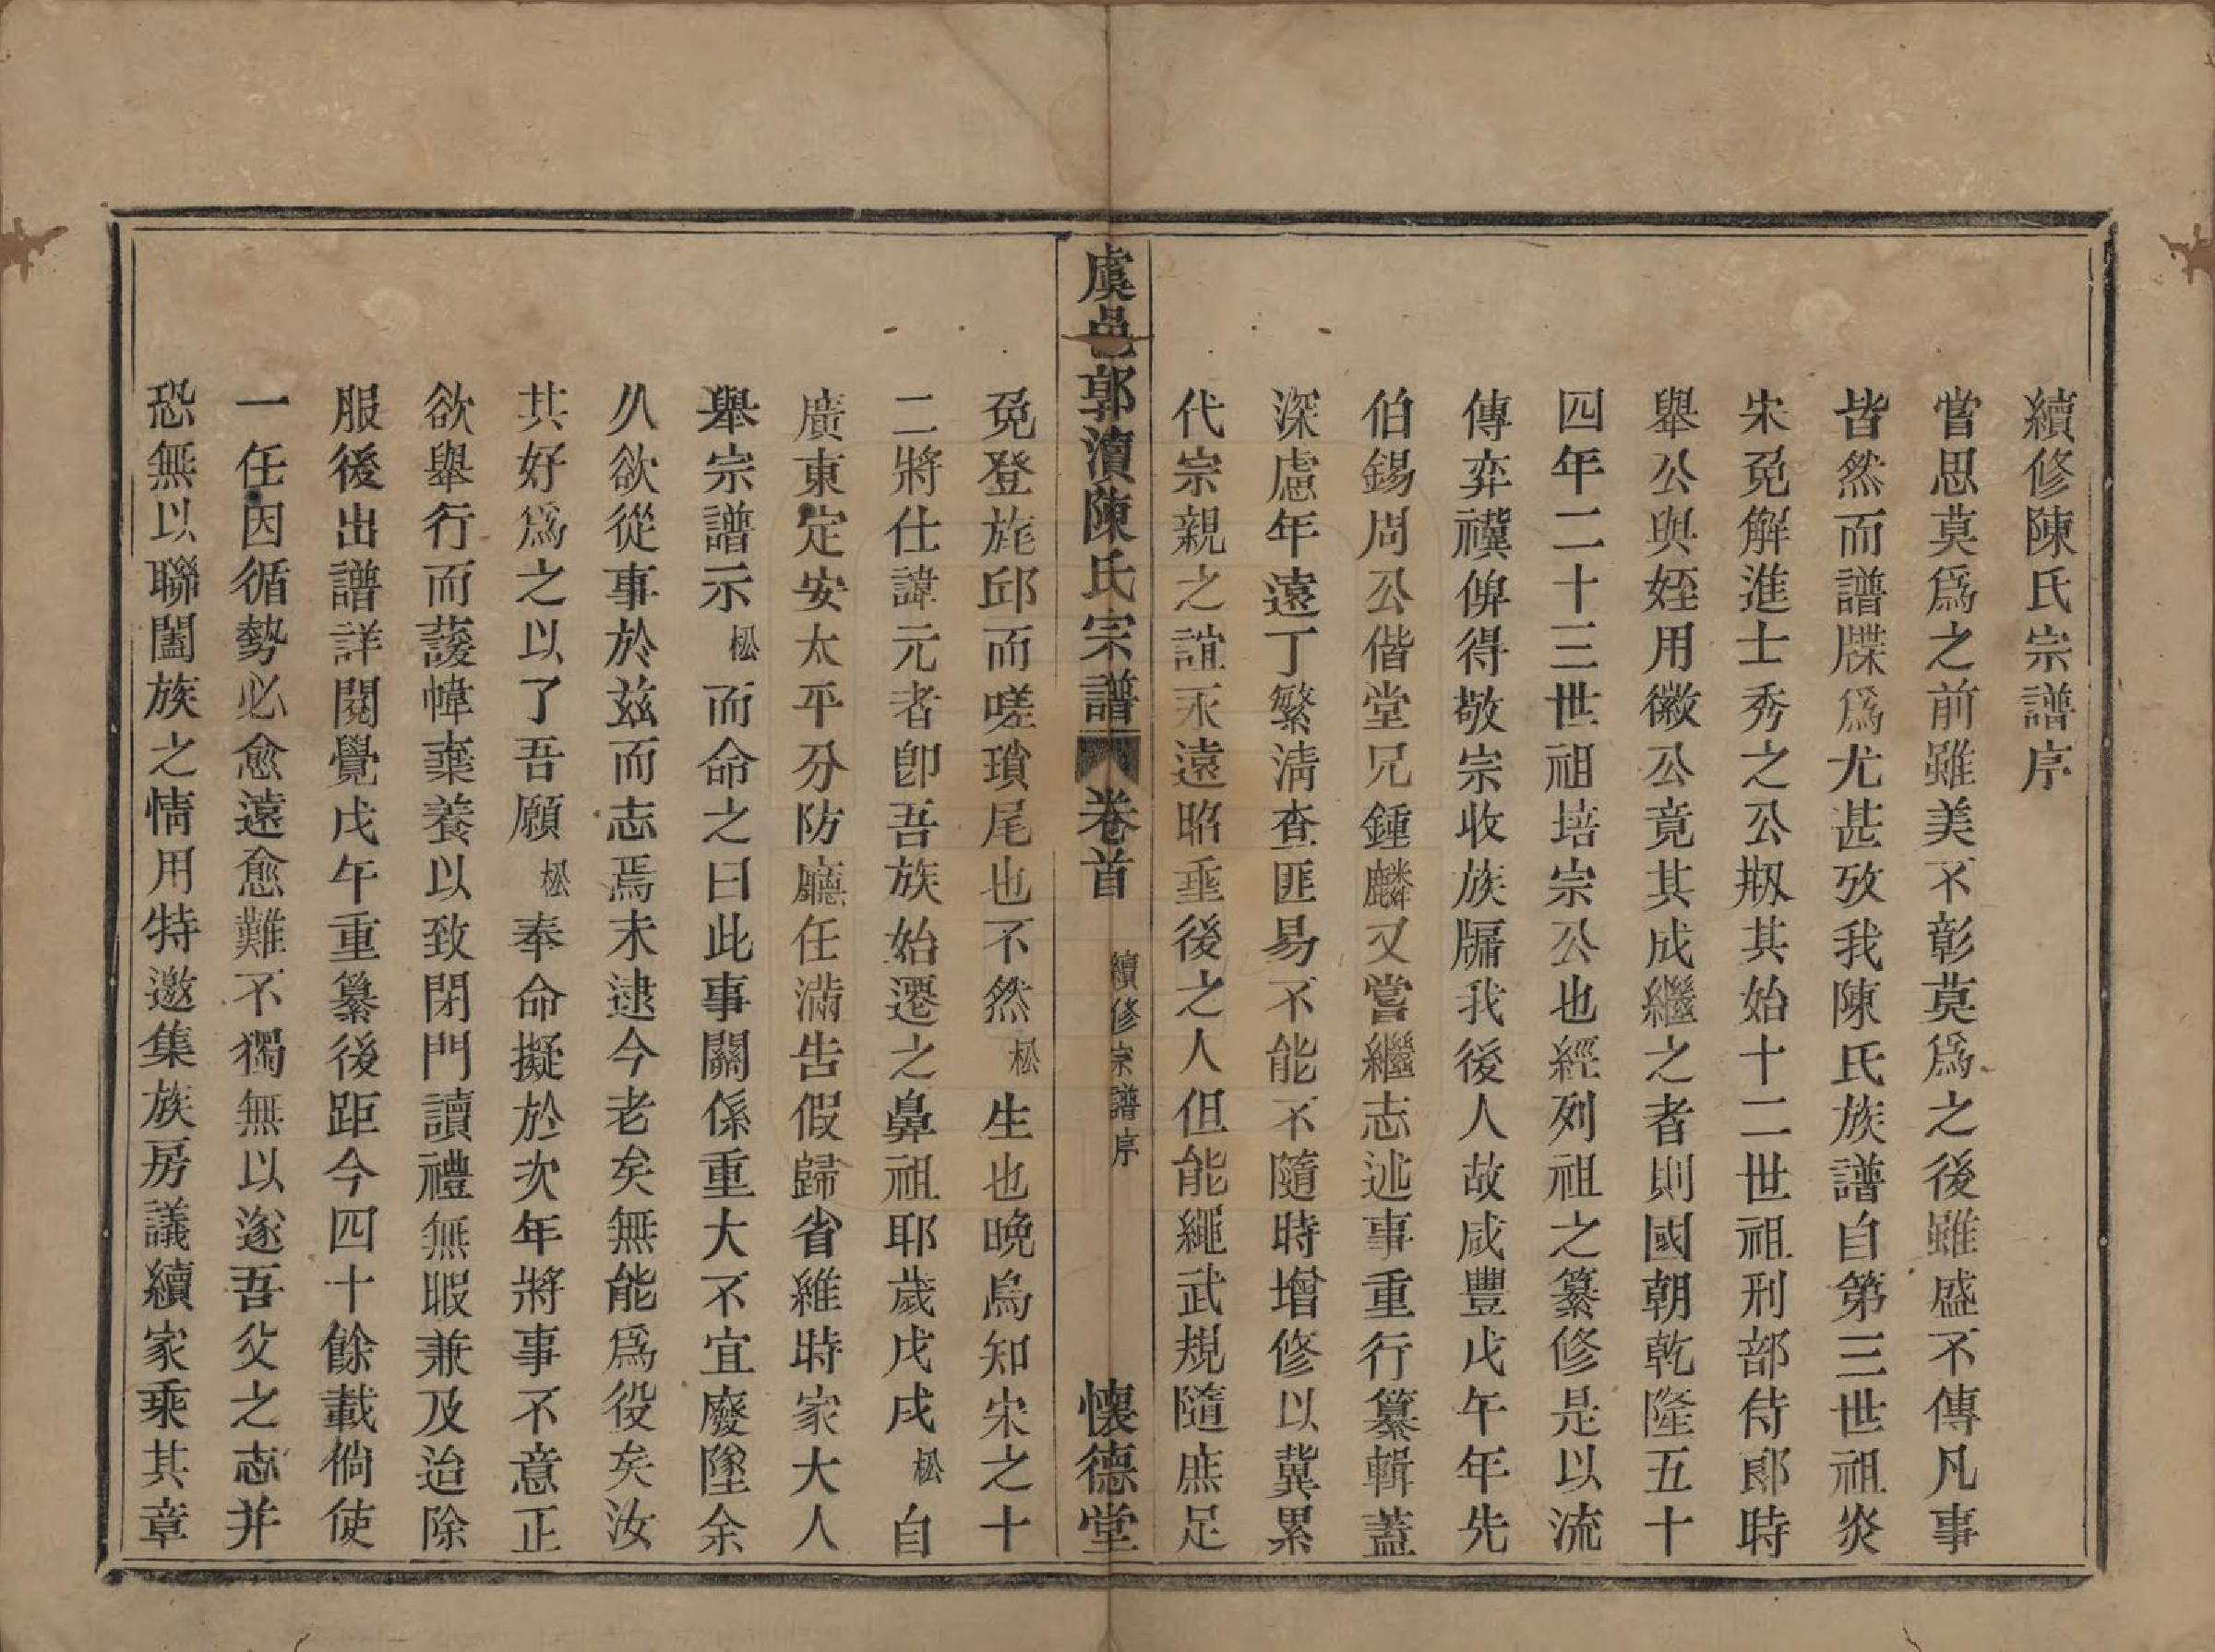 續修陳氏宗譜序
嘗思莫爲之前雖美不彰莫爲之後雖盛不傳凡事
皆然而譜牒爲尤甚攷我陳氏族譜自第三世祖炎
宋免解進士秀之公剏其始十二世祖刑部侍郎時
舉公與姪用徽公竟其成繼之者則國朝乾隆五十
四年二十三世祖培宗公也經列祖之纂修是以流
傳弈禩俾得敬宗收族牖我後人故咸豐戊午年先
伯錫周公偕堂兄鍾麟又嘗繼志述事重行纂輯蓋
深慮年遠丁繁淸查匪易不能不隨時增修以冀累
代宗親之誼永遠昭垂後之人但能繩武規隨庶足
虞邑郭瀆陳氏宗譜 卷首 續修宗譜序 懷德堂
免登旄邱而嗟瑣尾也不然松生也晚烏知宋之十
二將仕諱元者卽吾族始遷之鼻祖耶歲戊戌松自
廣東定安太平分防廳任滿告假歸省維時家大人
舉宗譜示松而命之曰此事關係重大不宜廢墜余
久欲從事於茲而志焉未逮今老矣無能爲役矣汝
其好爲之以了吾願松奉命擬於次年將事不意正
欲舉行而護幃棄養以致閉門讀禮無暇兼及迨除
服後出譜詳閱覺戊午重纂後距今四十餘載倘使
一任因循勢必愈遠愈難不獨無以遂吾父之志并
恐無以聯闔族之情用特邀集族房議續家乘其章